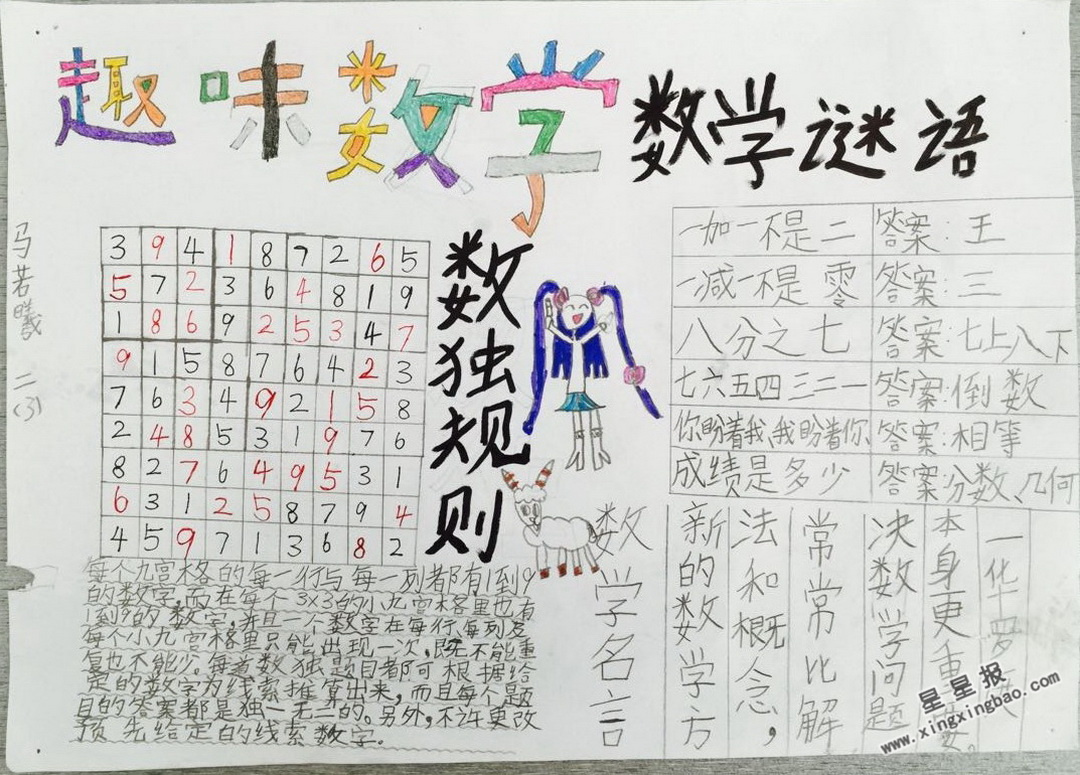 趣味数学
数学谜语
马若曦 二(3)
3 9 4 1 8 7 2 6 5
5 7 2 3 6 4 8 1 9
1 8 6 9 2 5 3 4 7
9 1 5 8 7 6 4 2 3
7 6 3 4 9 2 1 5 8
2 4 8 5 3 1 9 7 6
8 2 7 6 4 9 5 3 1
6 3 1 2 5 8 7 9 4
4 5 9 7 1 3 6 8 2
数独规则
每个九宫格的每一行与每一列都有1到9
的数字,而在每个3×3的小九宫格里也有
1到9的数字,并且一个数字在每行每列及
每个小九宫格里只能出现一次,既不能重
复也不能少。每道数独题目都可根据给
定的数字为线索推算出来,而且每个题
目的答案都是独一无二的。另外,不许更改
预先给定的线索数字.
一加一不是二 答案:王
一减一不是零 答案:三
八分之七 答案:七上八下
七六五四三二一 答案:倒数
你盼着我、我盼着你、 答案:相等
成绩是多少 答案:分数、几何
数学名言
新的数学方
法和概念,
常常比解
决数学问题
本身更重要。
一华罗
星星报
www.xingxingbao.com